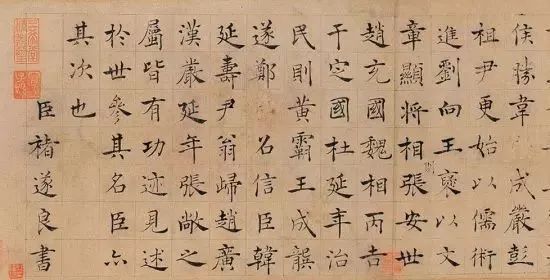 侯勝韋成嚴彭
祖尹更始以儒術
進劉向王褒以文
章顯將相張安世
趙充國魏相丙吉
于定國杜延年治
民則黃霸王成龔
遂鄭召信臣韓
延壽尹翁歸趙廣
漢嚴延年張敞之
屬皆有功迹見述
於世參其名臣亦
其次也
臣褚遂良書